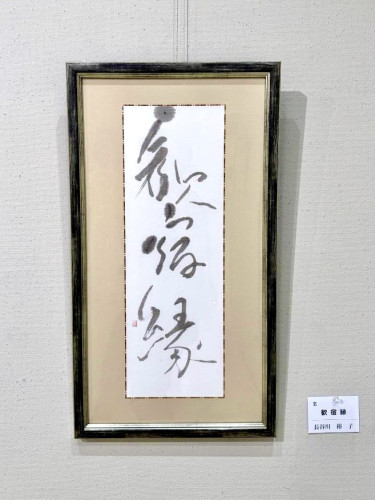 歓宿縁
歓宿縁
長谷川 裕子